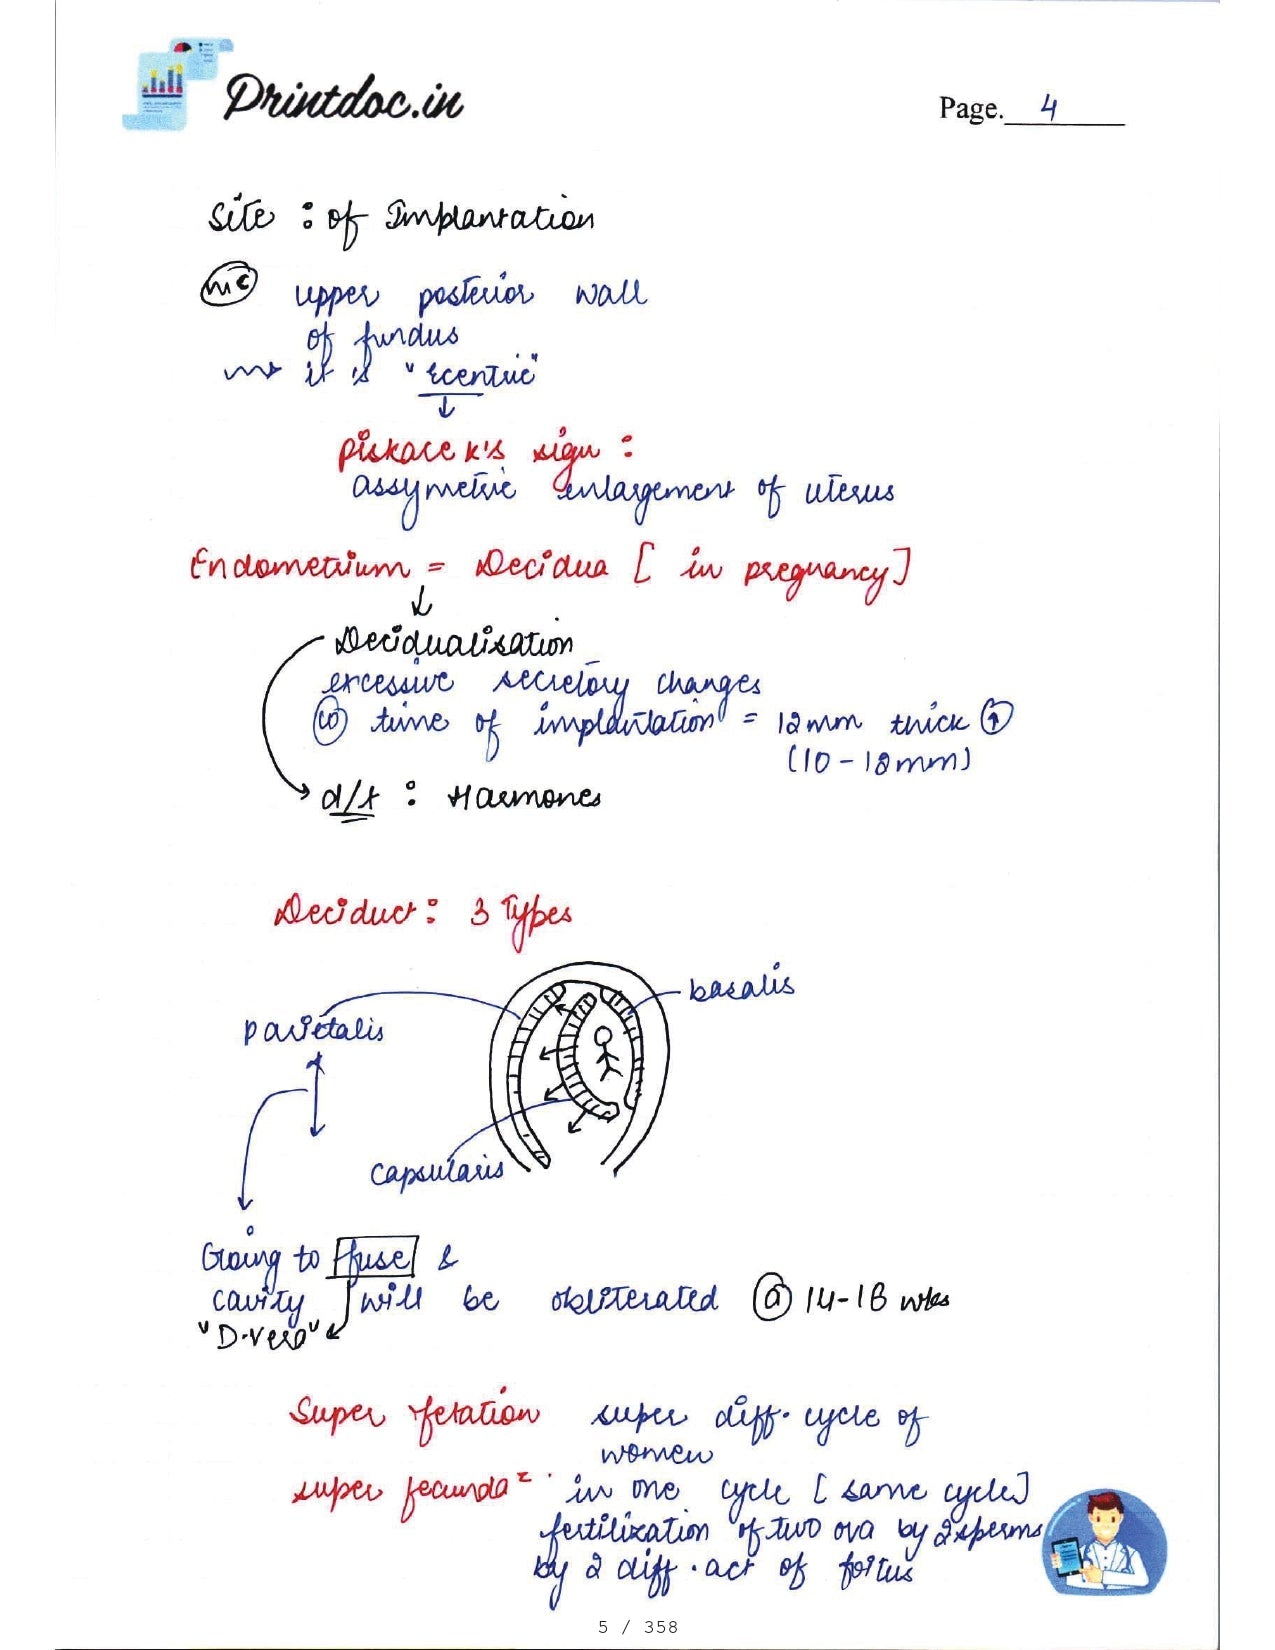 Printdoc.in
Page. 4
Site : of Implantation
mc upper posterior wall
of fundus
it is "Ecentric"
Piskace k's sign :
assymetric enlargement of uterus
Endometrium = Decidua [ in pregnancy]
Decidualisation
excessive secretory changes
time of implantation = 12mm thick ↑
(10 - 12mm)
d/t : Harmones
Deciduct : 3 Types
basalis
parietalis
capsularis
Going to fuse &
cavity will be obliterated @ 14-16 wks
"D.vera"
Super fetation super diff. cycle of
women
super fecunda² in one cycle [ same cycle]
fertilization of two ova by 2 sperms
by 2 diff. act of
5 / 358